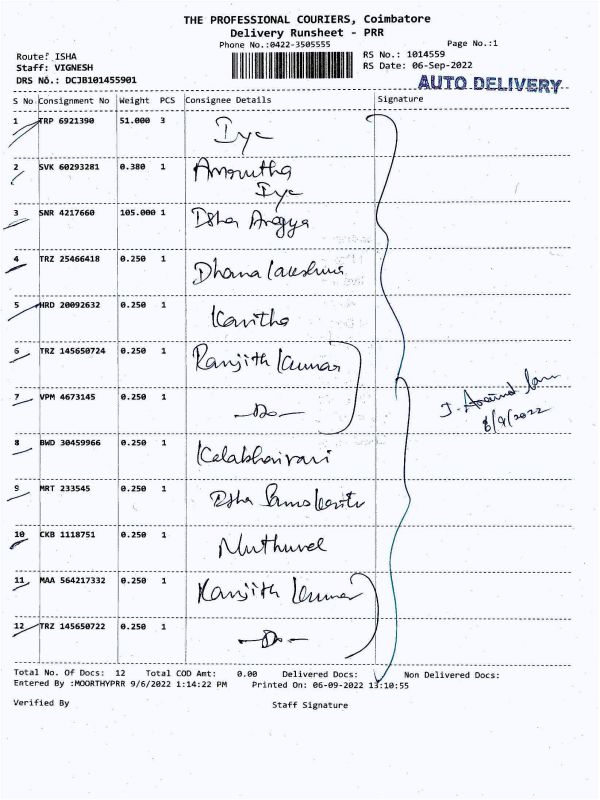 THE PROFESSIONAL COURIERS, Coimbatore
Delivery Runsheet - PRR
Phone No.:0422-3505555 Page No.:1
Route: ISHA RS No.: 1014559
Staff: VIGNESH RS Date: 06-Sep-2022
DRS No.: DCJB101455901
AUTO DELIVERY
S No Consignment No Weight PCS Consignee Details Signature
1 TRP 6921390 51.000 3 Iyc
2 SVK 60293281 0.380 1 Amrutha
Iyc
3 SNR 4217660 105.000 1 Isha Arogya
4 TRZ 25466418 0.250 1 Dhana lakshmi
5 HRD 20092632 0.250 1 Kavitha
6 TRZ 145650724 0.250 1 Ranjith Kumar
7 VPM 4673145 0.250 1 -Do-
J. Aravind
6/9/2022
8 BWD 30459966 0.250 1 Kalabhairavi
9 MRT 233545 0.250 1 Isha Samskriti
10 CKB 1118751 0.250 1 Muthuvel
11 MAA 564217332 0.250 1 Ranjith Kumar
12 TRZ 145650722 0.250 1 -Do-
Total No. Of Docs: 12 Total COD Amt: 0.00 Delivered Docs: Non Delivered Docs:
Entered By :MOORTHYPRR 9/6/2022 1:14:22 PM Printed On: 06-09-2022 13:10:55
Verified By Staff Signature